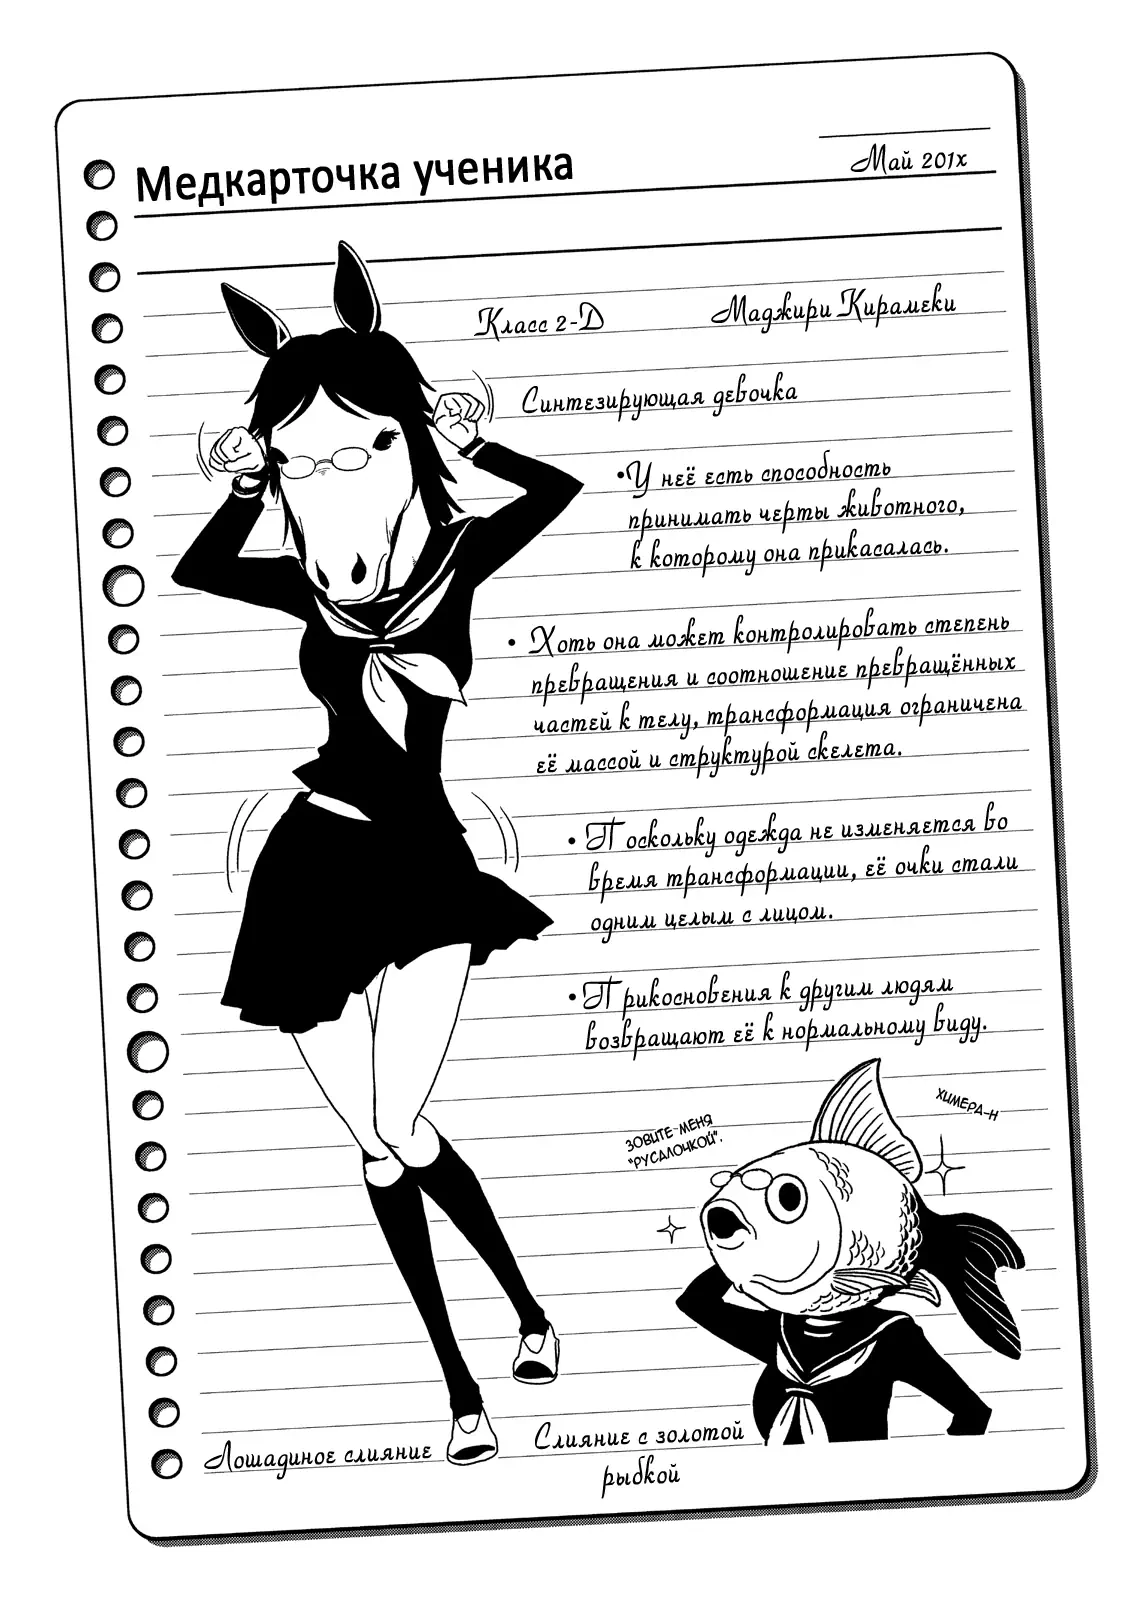 Медкарточка ученика
Май 201x
Класс 2-Д
Маджири Кирамеки
Синтезирующая девочка
•У неё есть способность
принимать черты животного,
к которому она прикасалась.
• Хоть она может контролировать степень
превращения и соотношение превращённых
частей к телу, трансформация ограничена
её массой и структурой скелета.
• Поскольку одежда не изменяется во
время трансформации, её очки стали
одним целым с лицом.
•Прикосновения к другим людям
возвращают её к нормальному виду.
ЗОВИТЕ МЕНЯ
"РУСАЛОЧКОЙ".
ХИМЕРА-Н
Лошадиное слияние
Слияние с золотой
рыбкой